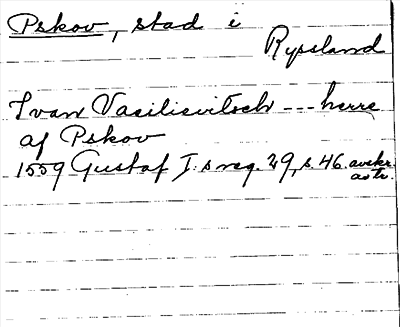 Pskov, stad i
Ryssland
Ivan Vasilievitsch --- herre
af Pskov
1559 Gustaf I:s reg. 29, s. 46. avskr.